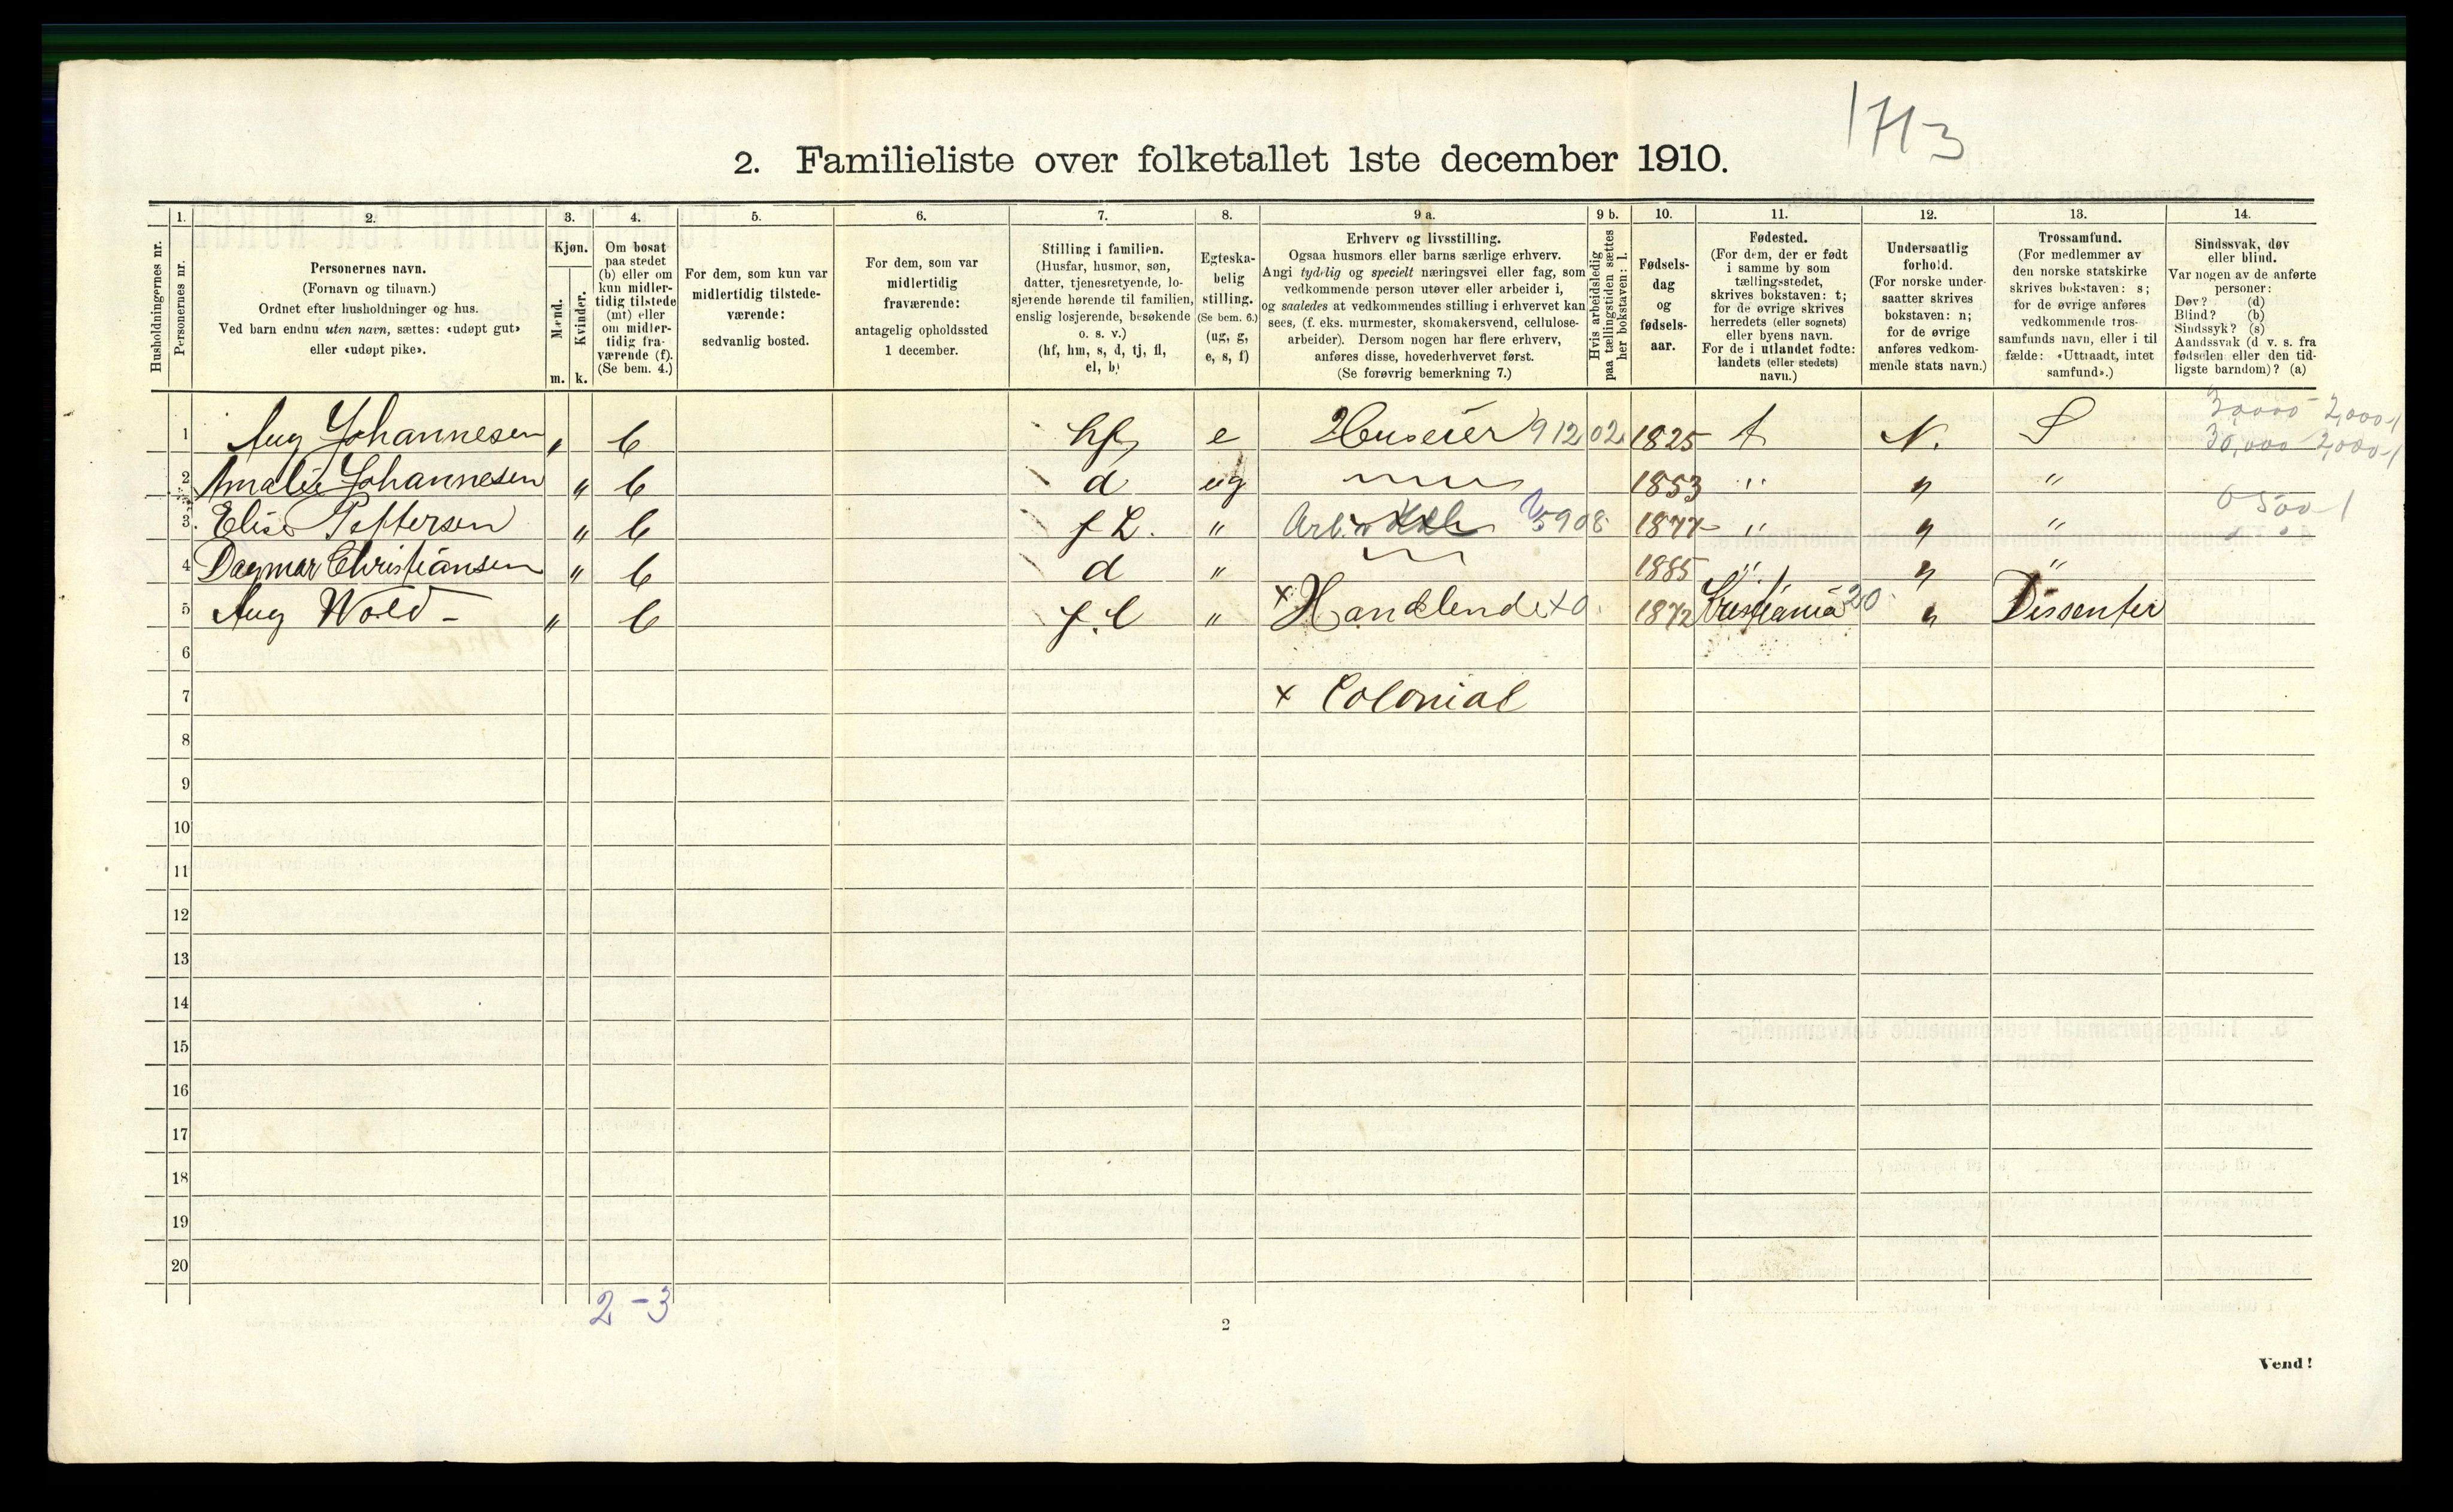 1713
2. Familieliste over folketallet 1ste december 1910.
Husholdningernes nr.
1.
Personernes nr.
2.
Personernes navn.
(Fornavn og tilnavn.)
Ordnet efter husholdninger og hus.
Ved barn endnu uten navn, sættes: «udøpt gut»
eller «udøpt pike».
3.
Kjøn.
Mænd.
Kvinder.
m. k.
4.
Om bosat
paa stedet
(b) eller om
kun midler-
tidig tilstede
(mt) eller
om midler-
tidig fra-
værende (f).
(Se bem. 4.)
5.
For dem, som kun var
midlertidig tilstede-
værende:
sedvanlig bosted.
6.
For dem, som var
midlertidig
fraværende:
antagelig opholdssted
1 december.
7.
Stilling i familien.
(Husfar, husmor, søn,
datter, tjenestetyende, lo-
sjerende hørende til familien,
enslig losjerende, besøkende
o. s. v.)
(hf, hm, s, d, tj, fl,
el, b)
8.
Egteska-
belig
stilling.
(Se bem. 6.)
(ug, g,
e, s, f)
9 a.
Erhverv og livsstilling.
Ogsaa husmors eller barns særlige erhverv.
Angi tydelig og specielt næringsvei eller fag, som
vedkommende person utøver eller arbeider i,
og saaledes at vedkommendes stilling i erhvervet kan
sees, (f. eks. murmester, skomakersvend, cellulose-
arbeider). Dersom nogen har flere erhverv,
anføres disse, hovederhvervet først.
(Se forøvrig bemerkning 7.)
9 b.
Hvis arbeidsledig
paa tællingstiden sættes
her bokstaven: l.
10.
Fødsels-
dag
og
fødsels-
aar.
11.
Fødested.
(For dem, der er født
i samme by som
tællingsstedet,
skrives bokstaven: t;
for de øvrige skrives
herredets (eller sognets)
eller byens navn.
For de i utlandet fødte:
landets (eller stedets)
navn.)
12.
Undersaatlig
forhold.
(For norske under-
saatter skrives
bokstaven: n;
for de øvrige
anføres vedkom-
mende stats navn.)
13.
Trossamfund.
(For medlemmer av
den norske statskirke
skrives bokstaven: s;
for de øvrige anføres
vedkommende tros-
samfunds navn, eller i til
fælde: «Uttraadt, intet
samfund».)
14.
Sindssvak, døv
eller blind.
Var nogen av de anførte
personer:
Døv? (d)
Blind? (b)
Sindssyk? (s)
Aandssvak (d. v. s. fra
fødselen eller den tid-
ligste barndom)? (a)
30000 2,000-1
1 Aug Johannesen " b hf e Huseier 912 02 1825 t N. S 30,000 2,000-1
2 Amalie Johannesen " b d ug 1853 " " "
3. Elise Pettersen " b f L. " Arb. 5908 1877 " " " 0 500-1
4 Dagmar Christiansen " b d " 1885 " " "
5 Aug Wold - " b f.l " × Handlende 1872 Kristiania 20 " Dissenter
6
7 × Colonial
8
9
10
11
12
13
14
15
16
17
18
19
20
2-3
2
Vend!